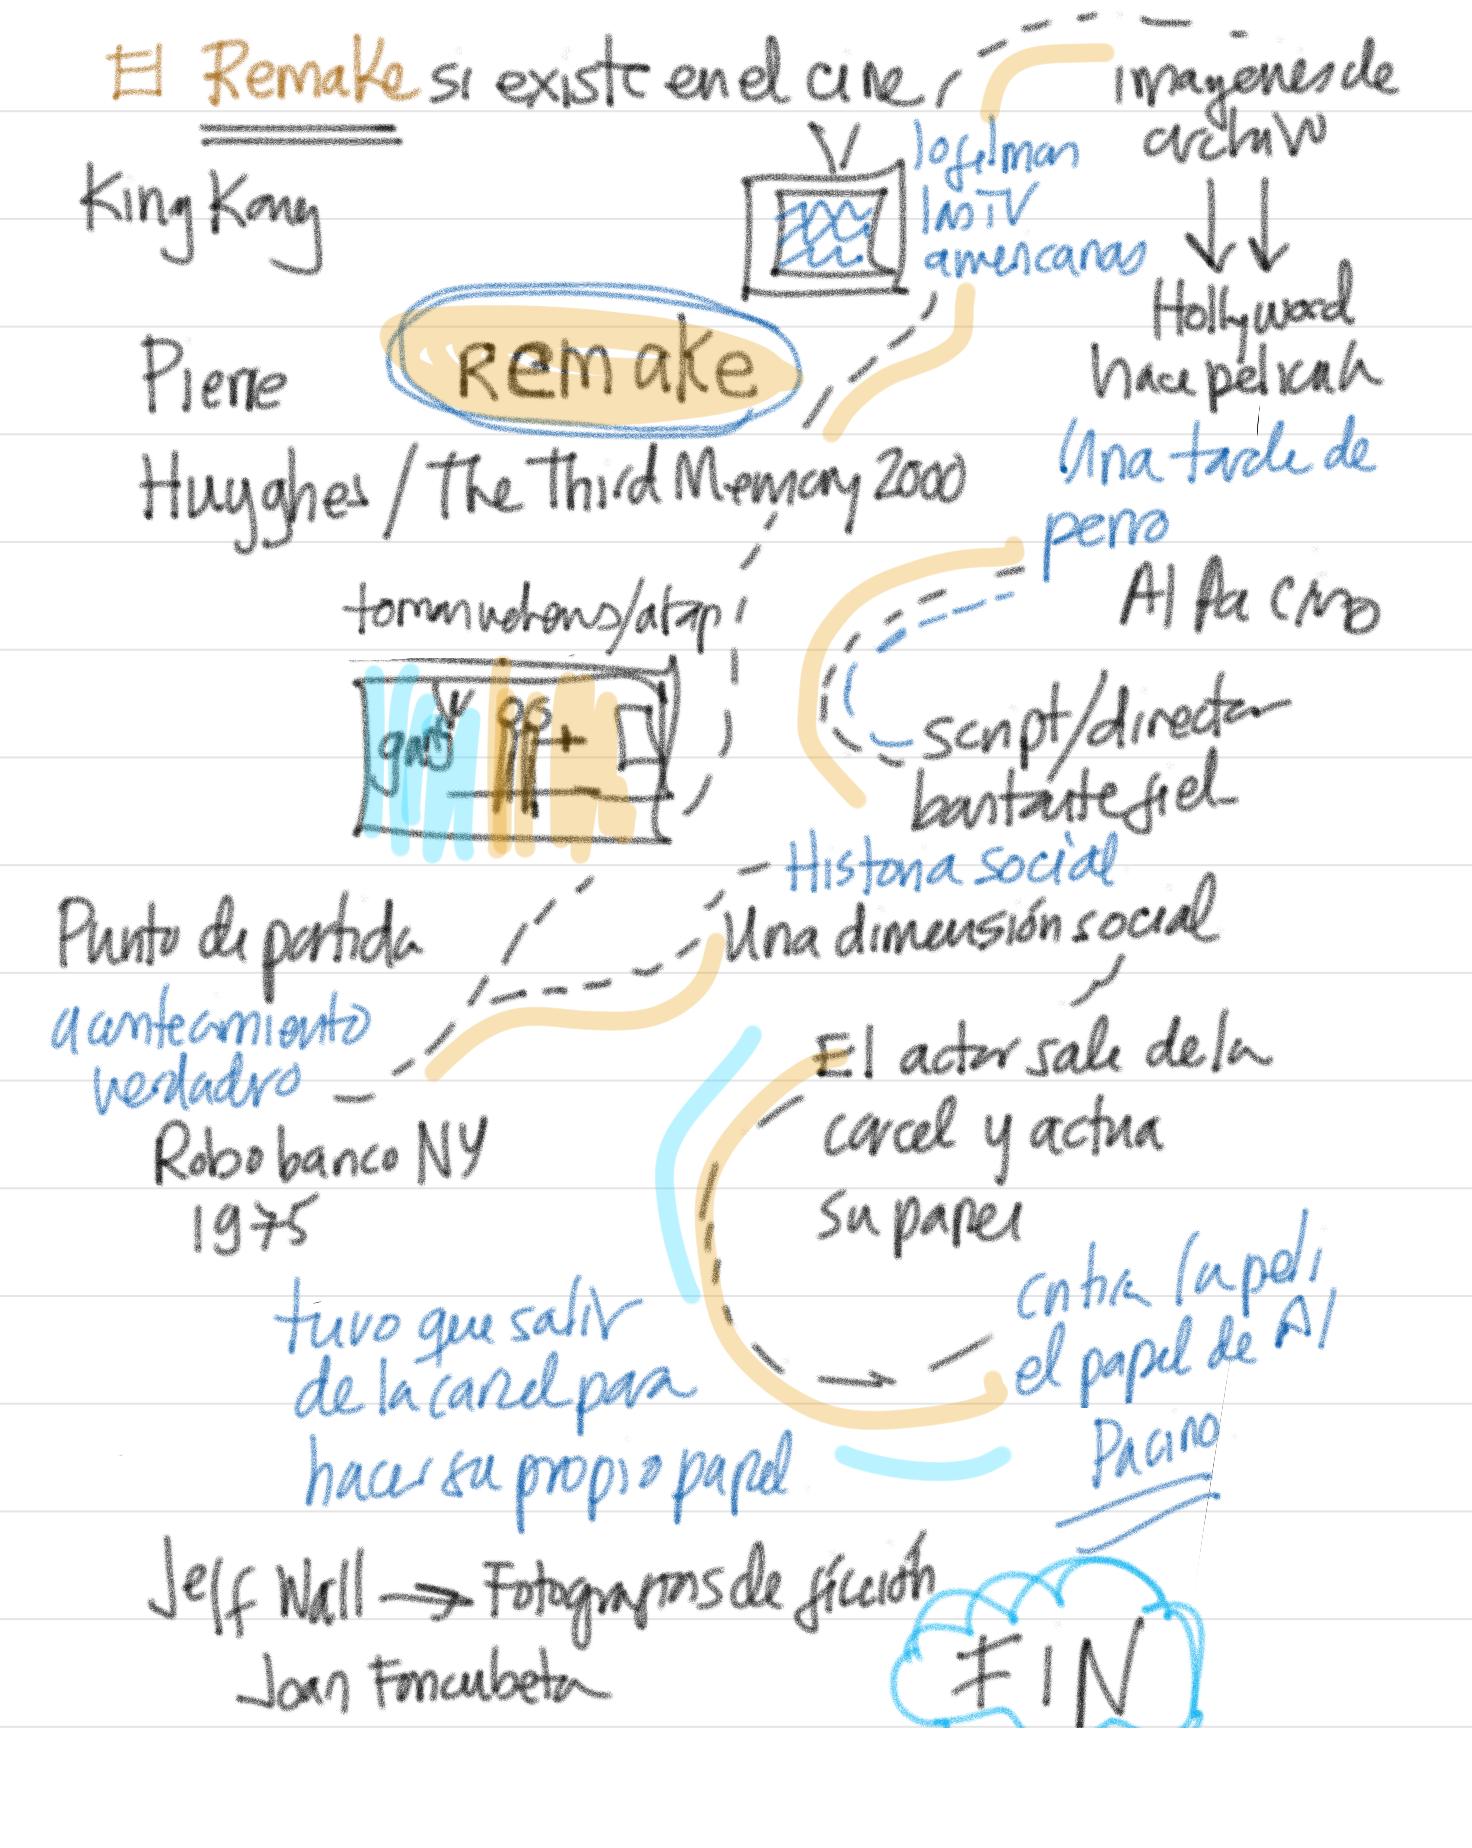 El Remake si existe en el cine
King Kong
lo filman
las TV
americanas
imagenes de
archivo
Hollywood
hace pelicula
Una tarde de
perro
Al Pacino
Pierre
Remake
Huyghes / The Third Memory 2000
script/director
bastante fiel
Historia social
Una dimensión social
Punto de partida
acontecimiento
verdadro
Robo banco NY
1975
El actor sale de la
carcel y actua
su papel
entra la peli
el papel de Al
Pacino
tuvo que salir
de la carcel para
hacer su propio papel
Jeff Wall → Fotografias de ficción
Joan Foncubeta
FIN